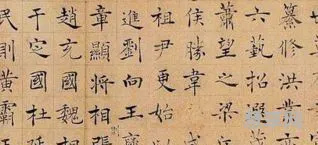 纂修洪業亦
六藝招選
蕭望之梁丘
侯勝韋
祖尹更始以
進劉向王褒
章顯將相張
趙充國魏相
于定國杜延
民則黃霸